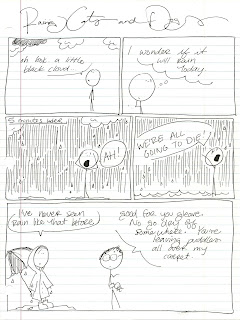 Raining Cats and Dogs
oh look a little
black cloud
I wonder if it
will rain
today
5 minutes later
AH!
WE'RE ALL
GOING TO DIE!
I've never seen
rain like that before
Good for you
No go
somewhere. You're
leaving puddles
all over my
carpet.